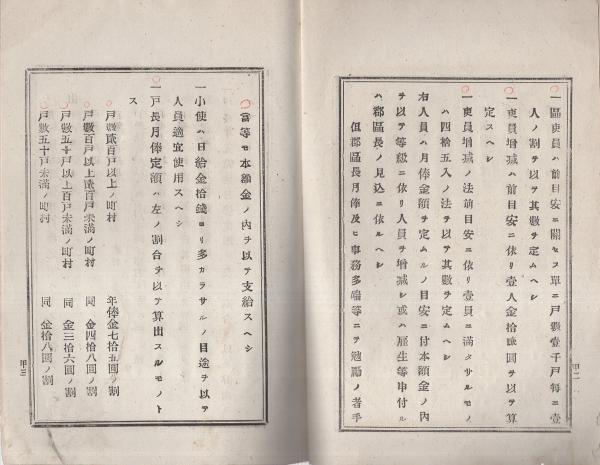 一區吏員ハ前目安ニ關セス單ニ戸數壹千戸每ニ壹
人ノ割ヲ以テ其數ヲ定ムヘシ
一吏員增減ハ前目安ニ依リ壹人金拾圓ヲ以テ算
定スヘシ
一吏員增減ノ法前目安ニ依リ壹員ニ滿タサルモノ
ハ四捨五入ノ法ヲ以テ其數ヲ定ムヘシ
右人員ハ月俸金額ヲ定ムルノ目安ニ付本額金ノ內
ヲ以テ等級ニ依リ人員ヲ增減シ或ハ雇生等申付ル
ハ郡區長ノ見込ニ依ルヘシ
但郡區長月俸及ヒ事務多端等ニテ勉勵ノ者手
甲二
當等モ本額金ノ內ヲ以テ支給スヘシ
一小使ハ日給金拾錢ヨリ多カラサルノ目途ヲ以テ
人員適宜使用スヘシ
一戸長月俸定額ハ左ノ割合ヲ以テ算出スルモノト
ス
戸數貳百戸以上ノ町村 年俸金七拾五圓ノ割
戸數百戸以上貳百戸未滿ノ町村 同 金四拾八圓ノ割
戸數五十戸以上百戸未滿ノ町村 同 金三拾六圓ノ割
戸數五十戸未滿ノ町村 同 金拾八圓ノ割
甲三